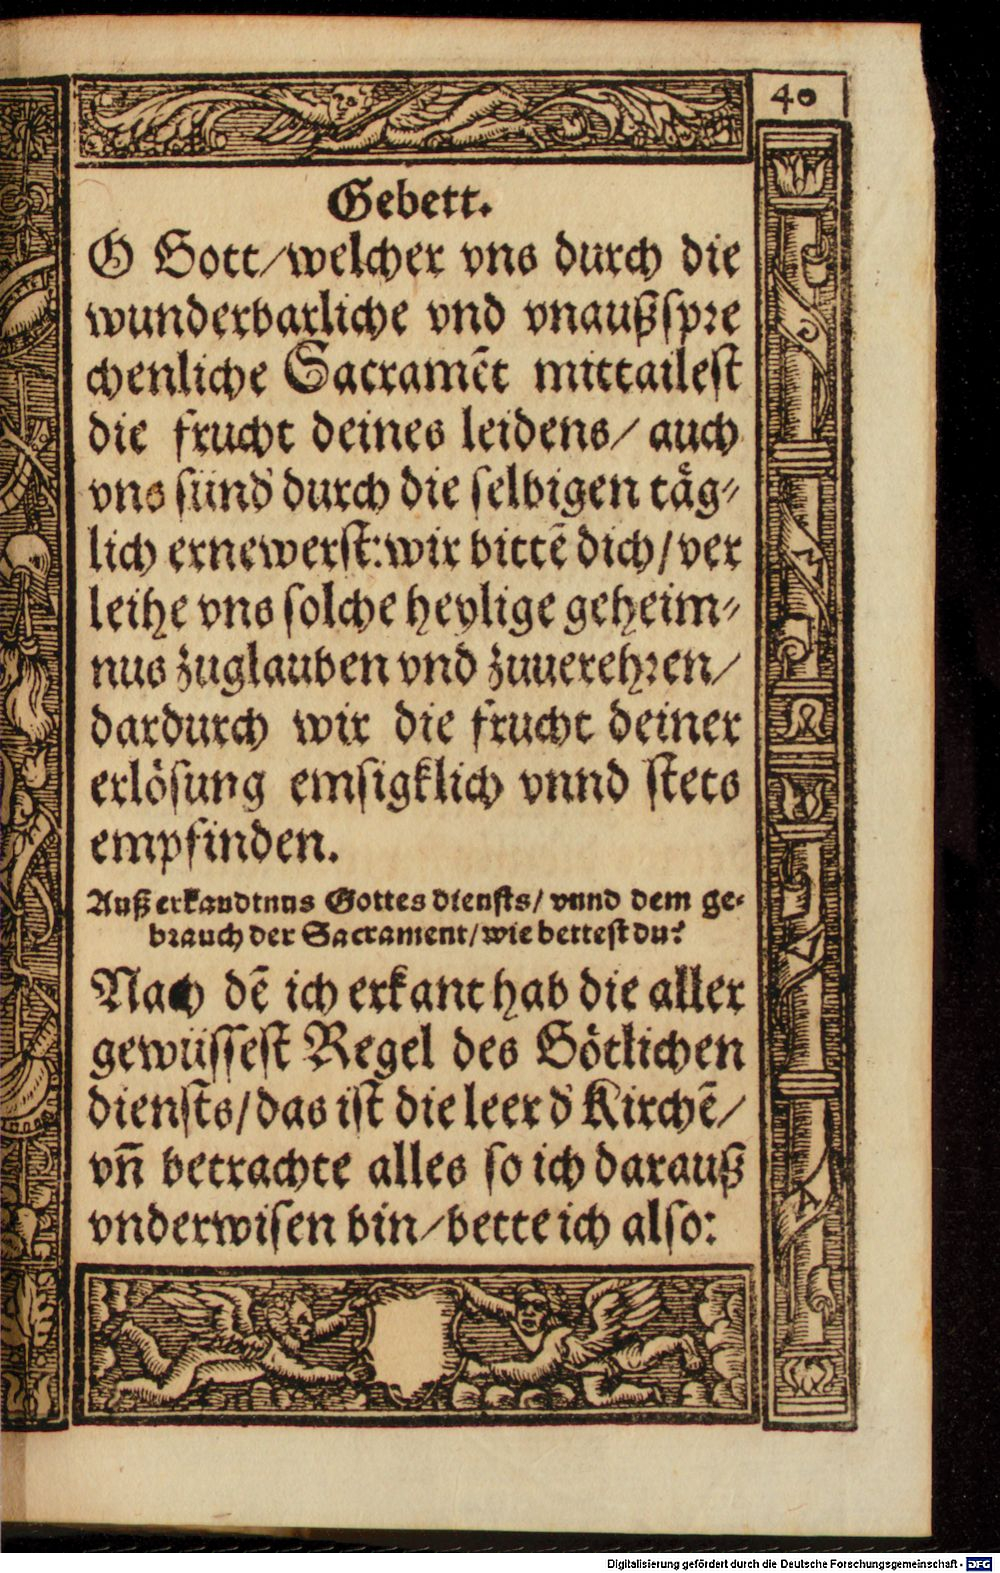 40
Gebett.
O Gott/welcher vns durch die
wunderbarliche vnd vnaußspre
chenliche Sacramēt mittailest
die frucht deines leidens/ auch
vns sünd' durch die selbigen täg⸗
lich ernewerst: wir bittē dich/ ver
leihe vns solche heylige geheim⸗
nus zuglauben vnd zuuerehren/
dardurch wir die frucht deiner
erlösung emsigklich vnnd stets
empfinden.
Auß erkandtnus Gottes diensts/ vnnd dem ge⸗
brauch der Sacrament/ wie bettest du?
Nach dē ich erkant hab die aller
gewüssest Regel des Götlichen
diensts/ das ist die leer d' Kirchē/
vn̄ betrachte alles so ich darauß
vnderwisen bin/ bette ich also:
Digitalisierung gefördert durch die Deutsche Forschungsgemeinschaft - DFG